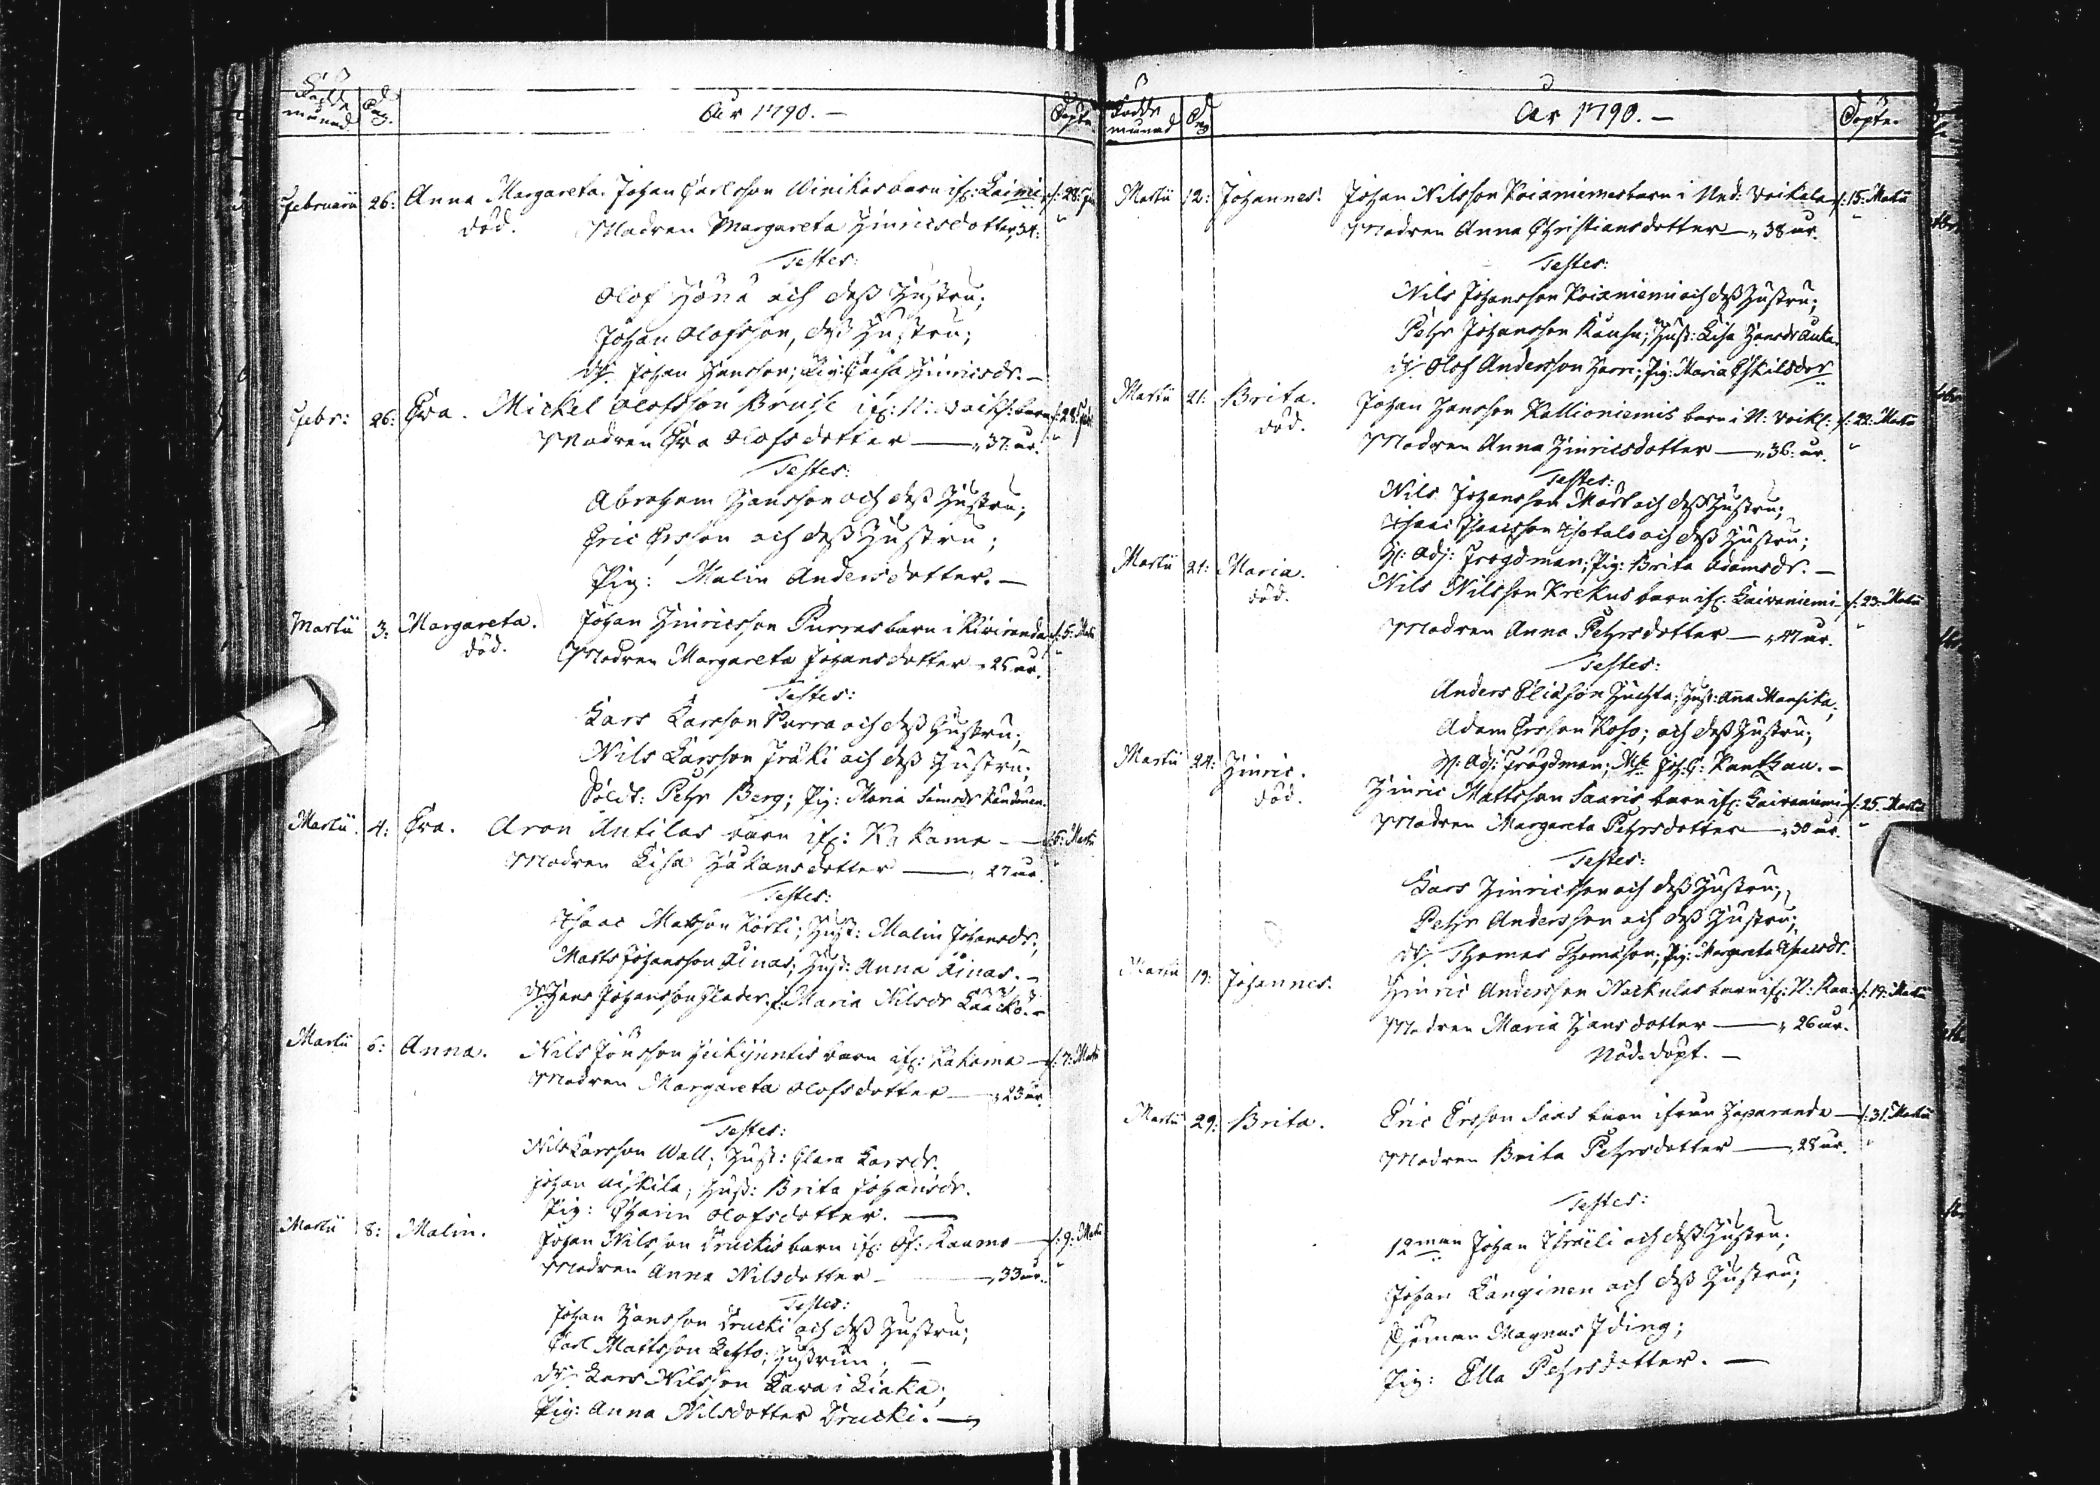 Födde
månad Dag. År 1790. — Döpte.
Februarii 26: Anna Margareta. Johan Carlsson Winikas barn ifr: Laivie f: 28: Feb
död. Modren Margareta Hinricsdotter, 34:
Testes:
Olof Hönä och dess Hustru;
Johan Olofsson, dess Hustru;
Dr: Johan Hansson; Pig: Caisa Hinricsdr. —
Febr: 26: Eva. Mickel Olofsson Bruse ifr: N: Voikl: barn f: 28: Feb
Modren Eva Olofsdotter — „ 37: år.
Testes:
Abraham Hansson och dess Hustru;
Eric Ersson och dess Hustru;
Pig: Malin Andersdotter. —
Martii 3: Margareta. Johan Hinricsson Purras barn i Kiviranda f: 5: Martii
död. Modren Margareta Johansdotter „ 25 år.
Testes:
Lars Larsson Purra och dess Hustru;
Nils Larsson Fräki och dess Hustru;
Soldt: Pehr Berg; Pig: Maria Simonsdr
Martii 4: Eva. Aron Antilas barn ifr: Kakama — f: 5: Martii
Modren Lisa Håkansdotter — „ 27 år.
Testes:
Isaac Matsson Körki; Hust: Malin Johansdr;
Matts Johansson Kinas; Hust: Anna Kinas. —
Dr: Hans Johansson; Maria Nilsdr Laacko. —
Martii 6: Anna. Nils Jönsson barn ifr: Kakama — f: 7: Martii
Modren Margareta Olofsdotter — „ 23 år.
Testes:
Nils Larsson Wall; Hust: Clara Larsdr.
Johan; Hust: Brita Johansdr.
Pig: Charin Olofsdotter. —
Martii 8: Malin. Johan Nilsson Druckis barn ifr: Öf: Raumo — f: 9: Martii
Modren Anna Nilsdotter — „ 33 år.
Testes:
Johan Hansson Drucki och dess Hustru;
Carl Mattsson Lehto; Hustrun. —
Dr: Lars Nilsson Lava i Liaka;
Pig: Anna Nilsdotter Drucki. —
Födde
månad Dag År 1790. — Döpte.
Martii 12: Johannes. Johan Nilsson Koianiemes barn i Ned: Voikala f: 15: Martii
Modren Anna Christiansdotter — „ 38 år.
Testes:
Nils Johansson Koianiemi och dess Hustru;
Pehr Johansson; Hust: Lisa Hansdr
Dr: Olof Andersson Harri; Pig: Maria Eskilsdotr
Martii 21: Brita. Johan Hansson Kallioniemis barn i N: Voikl: f: 22: Martii
död. Modren Anna Hinricsdotter — „ 36: år.
Testes:
Nils Johansson och dess Hustru;
Isaac Isacsson och dess Hustru;
H: Adj: Frogdman; Pig: Brita Adamsdr. —
Martii 21: Maria. Nils Nilsson Krekus barn ifr: Laivaniemi f: 23: Martii
död. Modren Anna Pehrsdotter — „ 47 år.
Testes:
Anders Eliasson Huchta; Hust: Anna Mansika;
Adam Ersson Koho; och dess Hustru;
H: Adj: Frogdman; Joh: G: Kantzau. —
Martii 24: Hinric. Hinric Mattsson Saaris barn ifr: Laivaniemi f: 25: Martii
död. Modren Margareta Pehrsdotter — „ 30 år.
Testes:
Lars Hinricsson och dess Hustru;
Pehr Andersson och dess Hustru;
Dr: Thomas Thomasson; Pig: Margareta
Martii 19: Johannes. Hinric Andersson Nackulas barn ifr: N: Rau: f: 19: Martii
Modren Maria Hansdotter — „ 26 år.
Nöd-döpt. —
Martii 29: Brita. Eric Ersson Saas barn ifrån Haparanda — f: 31: Martii
Modren Brita Pehrsdotter — „ 28 år.
Testes:
12man Johan Israeli och dess Hustru;
Johan Kanginen och dess Hustru;
Sjöman Magnus Iding;
Pig: Ella Pehrsdotter. —